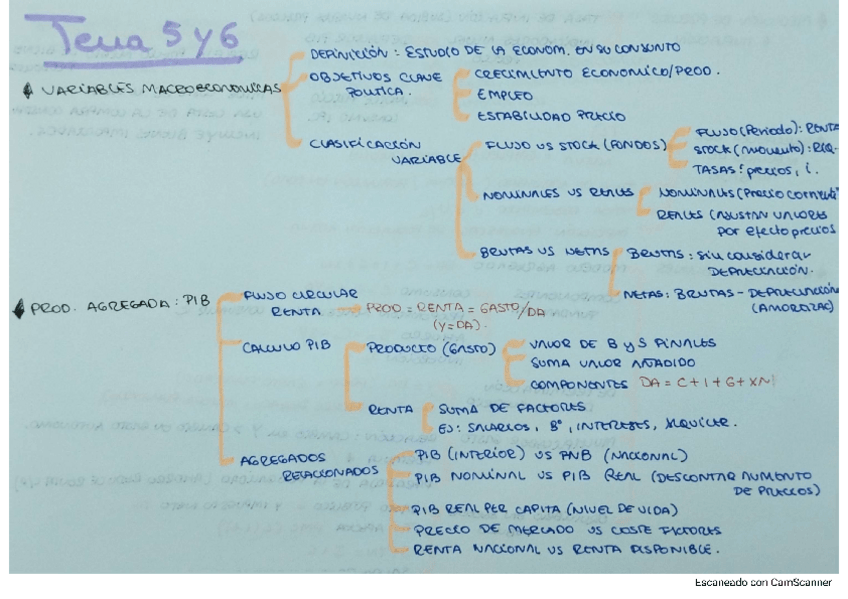 Tema 5 y 6
VARIABLES MACROECONOMICAS
DEFINICIÓN: ESTUDIO DE LA ECONOM. EN SU CONSUNTO
OBJETIVOS CLAVE
POLITICA.
CRECIMIENTO ECONOMICO/PROD.
EMPLEO
ESTABILIDAD PRECIO
CLASIFICACIÓN
VARIABLE
FLUJO VS STOCK (FONDOS)
FLUJO (Periodo): RENTA
STOCK (momento): RIQ-
TASAS: precios, i.
NOMINALES VS REALES
NOMINALES (Precio corriente)
REALES (AJUSTAN VALORES
POR efecto precios
BRUTAS VS NETAS
BRUTAS: sin considerar
DEPRECIACIÓN.
NETAS: BRUTAS - DEPRECIACIÓN
(AMORTIZAC)
PROD. AGREGADA: PIB
FLUJO CIRCULAR
RENTA
PROD = RENTA = GASTO/DA
(Y=DA).
CALCULO PIB
PRODUCTO (GASTO)
VALOR DE B y S FINALES
SUMA VALOR AÑADIDO
COMPONENTES DA = C + I + G + XN
RENTA
SUMA DE FACTORES
EJ: SALARIOS, Bº, INTERESES, ALQUILER.
AGREGADOS
RELACIONADOS
PIB (INTERIOR) VS PNB (NACIONAL)
PIB NOMINAL VS PIB REAL (DESCONTAR AUMENTO
DE PRECIOS)
PIB REAL PER CAPITA (NIVEL DE VIDA)
PRECIO DE MERCADO VS COSTE FACTORES
RENTA NACIONAL VS RENTA DISPONIBLE.
Escaneado con CamScanner